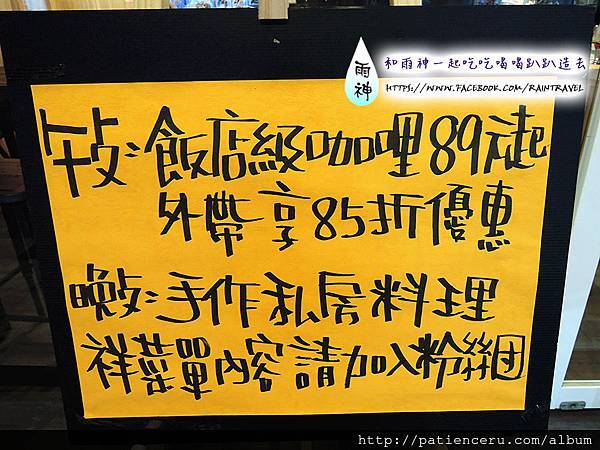 雨神
和雨神一起吃吃喝喝趴趴造去
HTTPS://WWW.FACEBOOK.COM/RAINTRAVEL
午攵:飯店級咖哩89起
外帶享85折優惠
晚攵:手作私房料理
祥菜單內容請加入粉絲団
http://patienceru.com/album